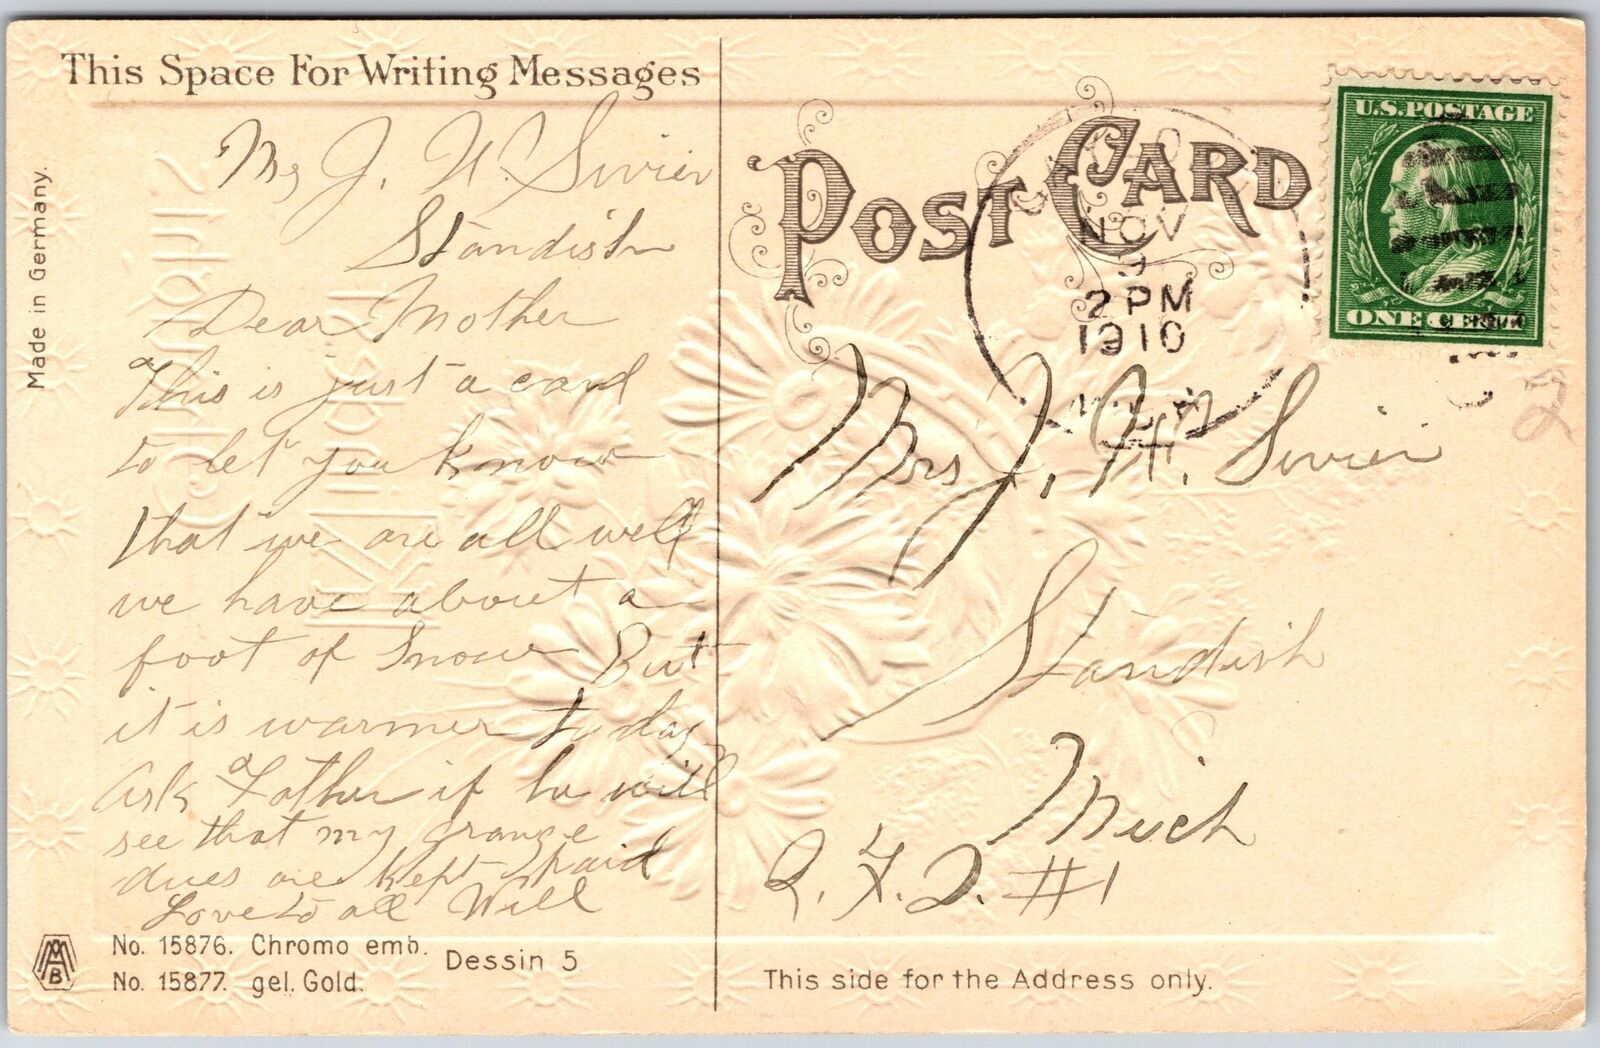 This Space For Writing Messages
Mrs J. H. Sivier
Standish
Dear Mother
This is just a card
to let you know
that we are all well
we have about a
foot of Snow But
it is warmer to day
Ask Father if he will
see that my grange
dues are kept paid
Love to all Will
Made in Germany.
M
A B
No. 15876. Chromo emb.
No. 15877. gel. Gold.
Dessin 5
POST CARD
NOV
9
2 PM
1910
U.S. POSTAGE
ONE CENT
Mrs J. H. Sivier
Standish
Mich
R. F. D. #1
This side for the Address only.